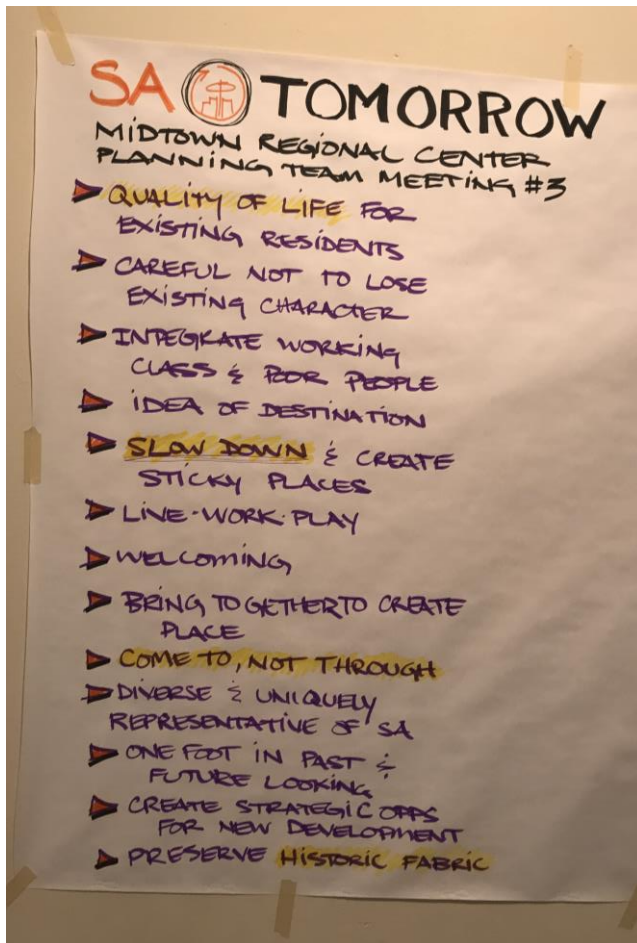 SA TOMORROW
MIDTOWN REGIONAL CENTER
PLANNING TEAM MEETING #3
QUALITY OF LIFE FOR
EXISTING RESIDENTS
CAREFUL NOT TO LOSE
EXISTING CHARACTER
INTEGRATE WORKING
CLASS & POOR PEOPLE
IDEA OF DESTINATION
SLOW DOWN & CREATE
STICKY PLACES
LIVE-WORK-PLAY
WELCOMING
BRING TOGETHER TO CREATE
PLACE
COME TO, NOT THROUGH
DIVERSE & UNIQUELY
REPRESENTATIVE OF SA
ONE FOOT IN PAST &
FUTURE LOOKING
CREATE STRATEGIC OPPS
FOR NEW DEVELOPMENT
PRESERVE HISTORIC FABRIC